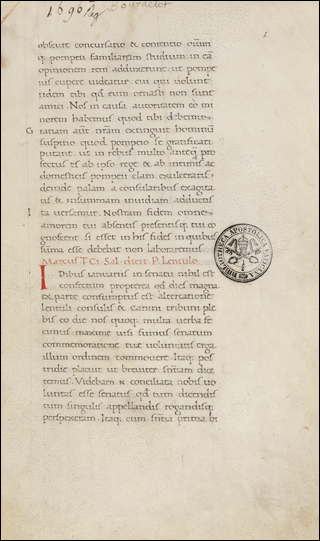 1690
Bourdelot
1
obfecit concursatio & contentio omnium
q; pompeii familiarium studium in ea
opinionem rem adduxerunt: ut pompe
ius cupere videatur. cui qui volunt
iidem tibi qd eum ornasti non sunt
amici. Nos in causa autoritatem eo mi
norem habemus quod tibi debemus.
G
ratiam aut nram extinguit hominu
suspitio quod pompeio se gratificari
putant. ut in rebus multo anteq pro
fectus es ab ipso rege & ab intimis ac
domesticis pompeii clam exulceratis.
deinde palam a consularibus exagita
tis & in summam invidiam adductis
ita versamur. Nostram fidem omnes
amorem tui absentis presentesq; tui co
gnoscent. si esset in his fides in quibus
suma esse debebat non laboraremus
Marcus T. Ci. Sal. dicit. P. Lentulo.
I
Idibus ianuariis in senatu nihil est
confectum propterea qd dies magna
ex parte consumptus est altercatione
lentuli consulis & canini tribuni ple
bis eo die nos quoq; multa verba fe
cimus maxime visi sumus senatum
commemoratione tue voluntatis erga
illum ordinem commovere. Itaq; pos
tridie placuit ut breviter sentias dice
remus. Videbatur conciliata nobis vo
luntas esse senatus qd tum dicendis
tum singulis appellandis rogandisq;
perspexeram. Itaq; cum sntia prima bi
BIBLIOTHECA APOSTOLICA VATICANA